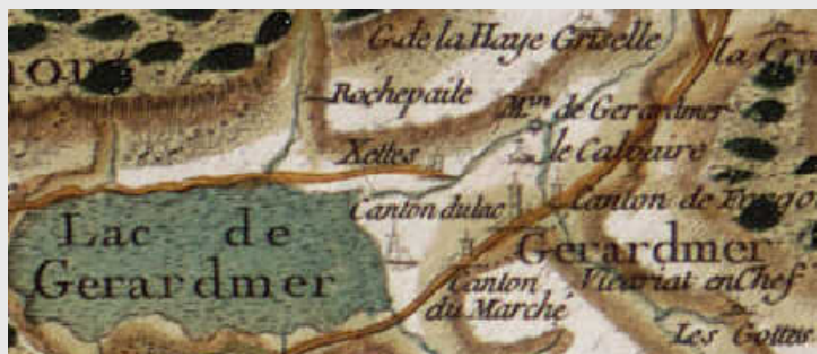 G. de la Haye Griselle
la Cro
Rochepaile
Min de Gerardmer
Xettes
le Calvaire
Canton du lac
Canton de Forgo
Lac de
Gerardmer
Gerardmer
Canton
du Marché
Vicariat en Chef
Les Gouttes